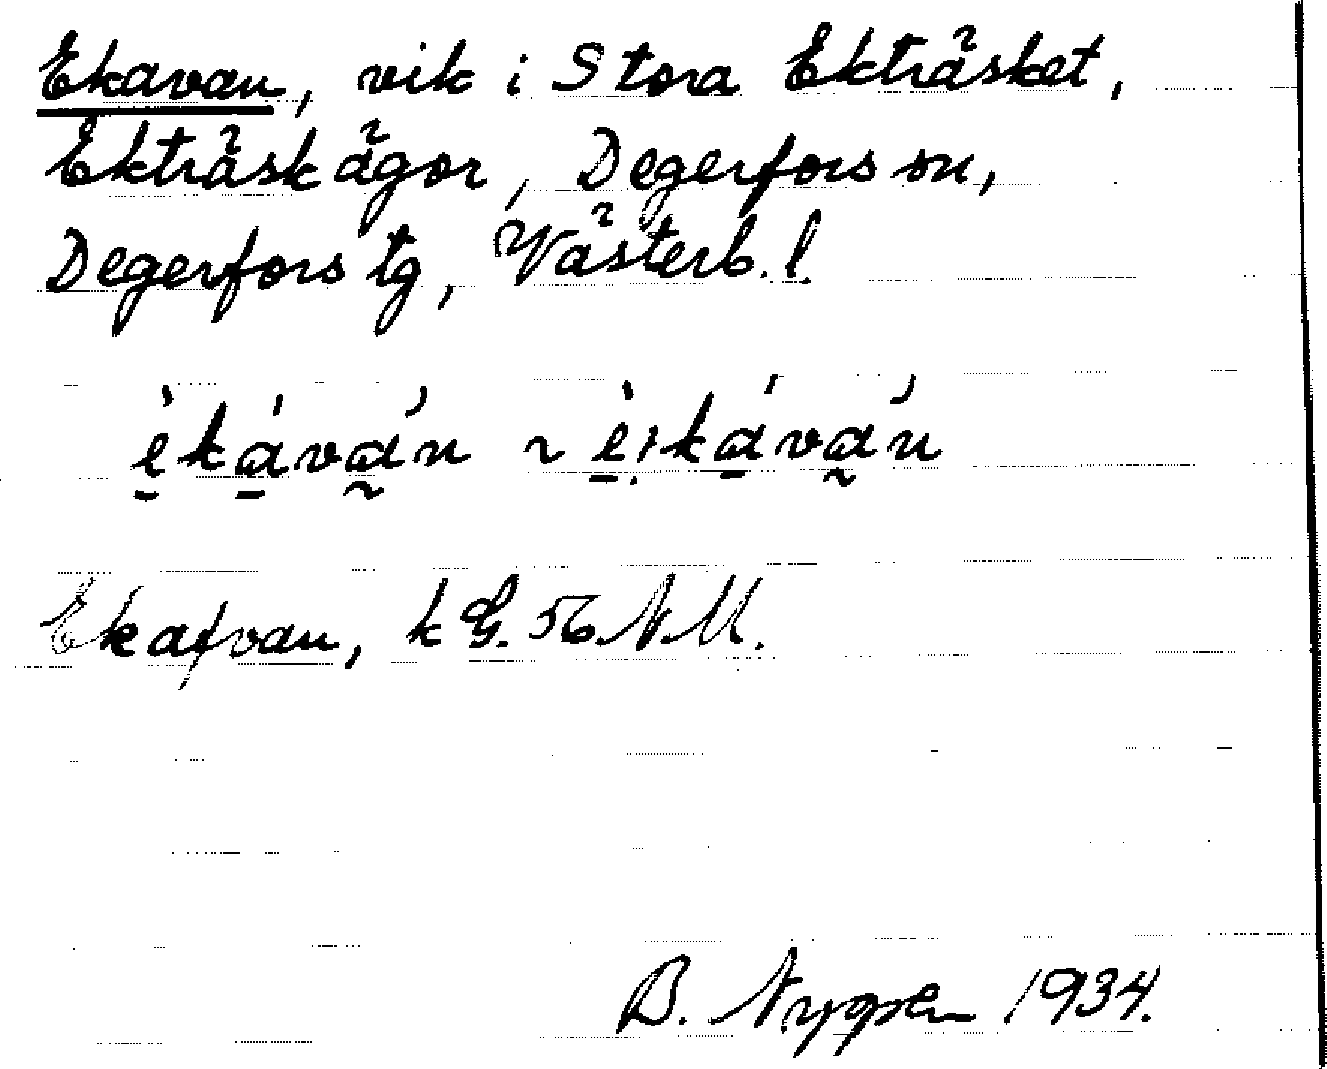 Ekavan, vik i Stora Ekträsket,
Ekträsk ägor, Degerfors sn,
Degerfors tg, Västerb. l.
è̱ká̱vá̰n ~ è̱:ká̱vá̰n
Ekafvan, k G. 56 NM.
B. Nygren 1934.